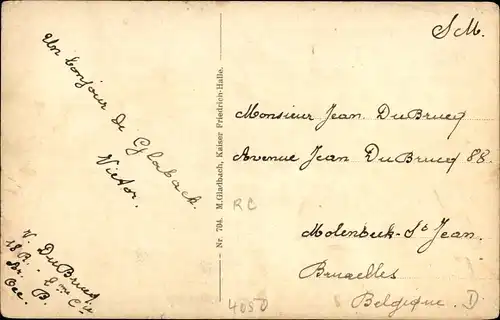 S.M.
Un bonjour de
Gladbach.
Victor.
V. DuBrucq
18 R. 2me Cie
Ar. B.
Occ.
Nr. 704. M.Gladbach, Kaiser Friedrich-Halle.
Monsieur Jean DuBrucq
Avenue Jean DuBrucq 88.
Molenbeek-St Jean.
Bruxelles
Belgique.
RC
4050
D